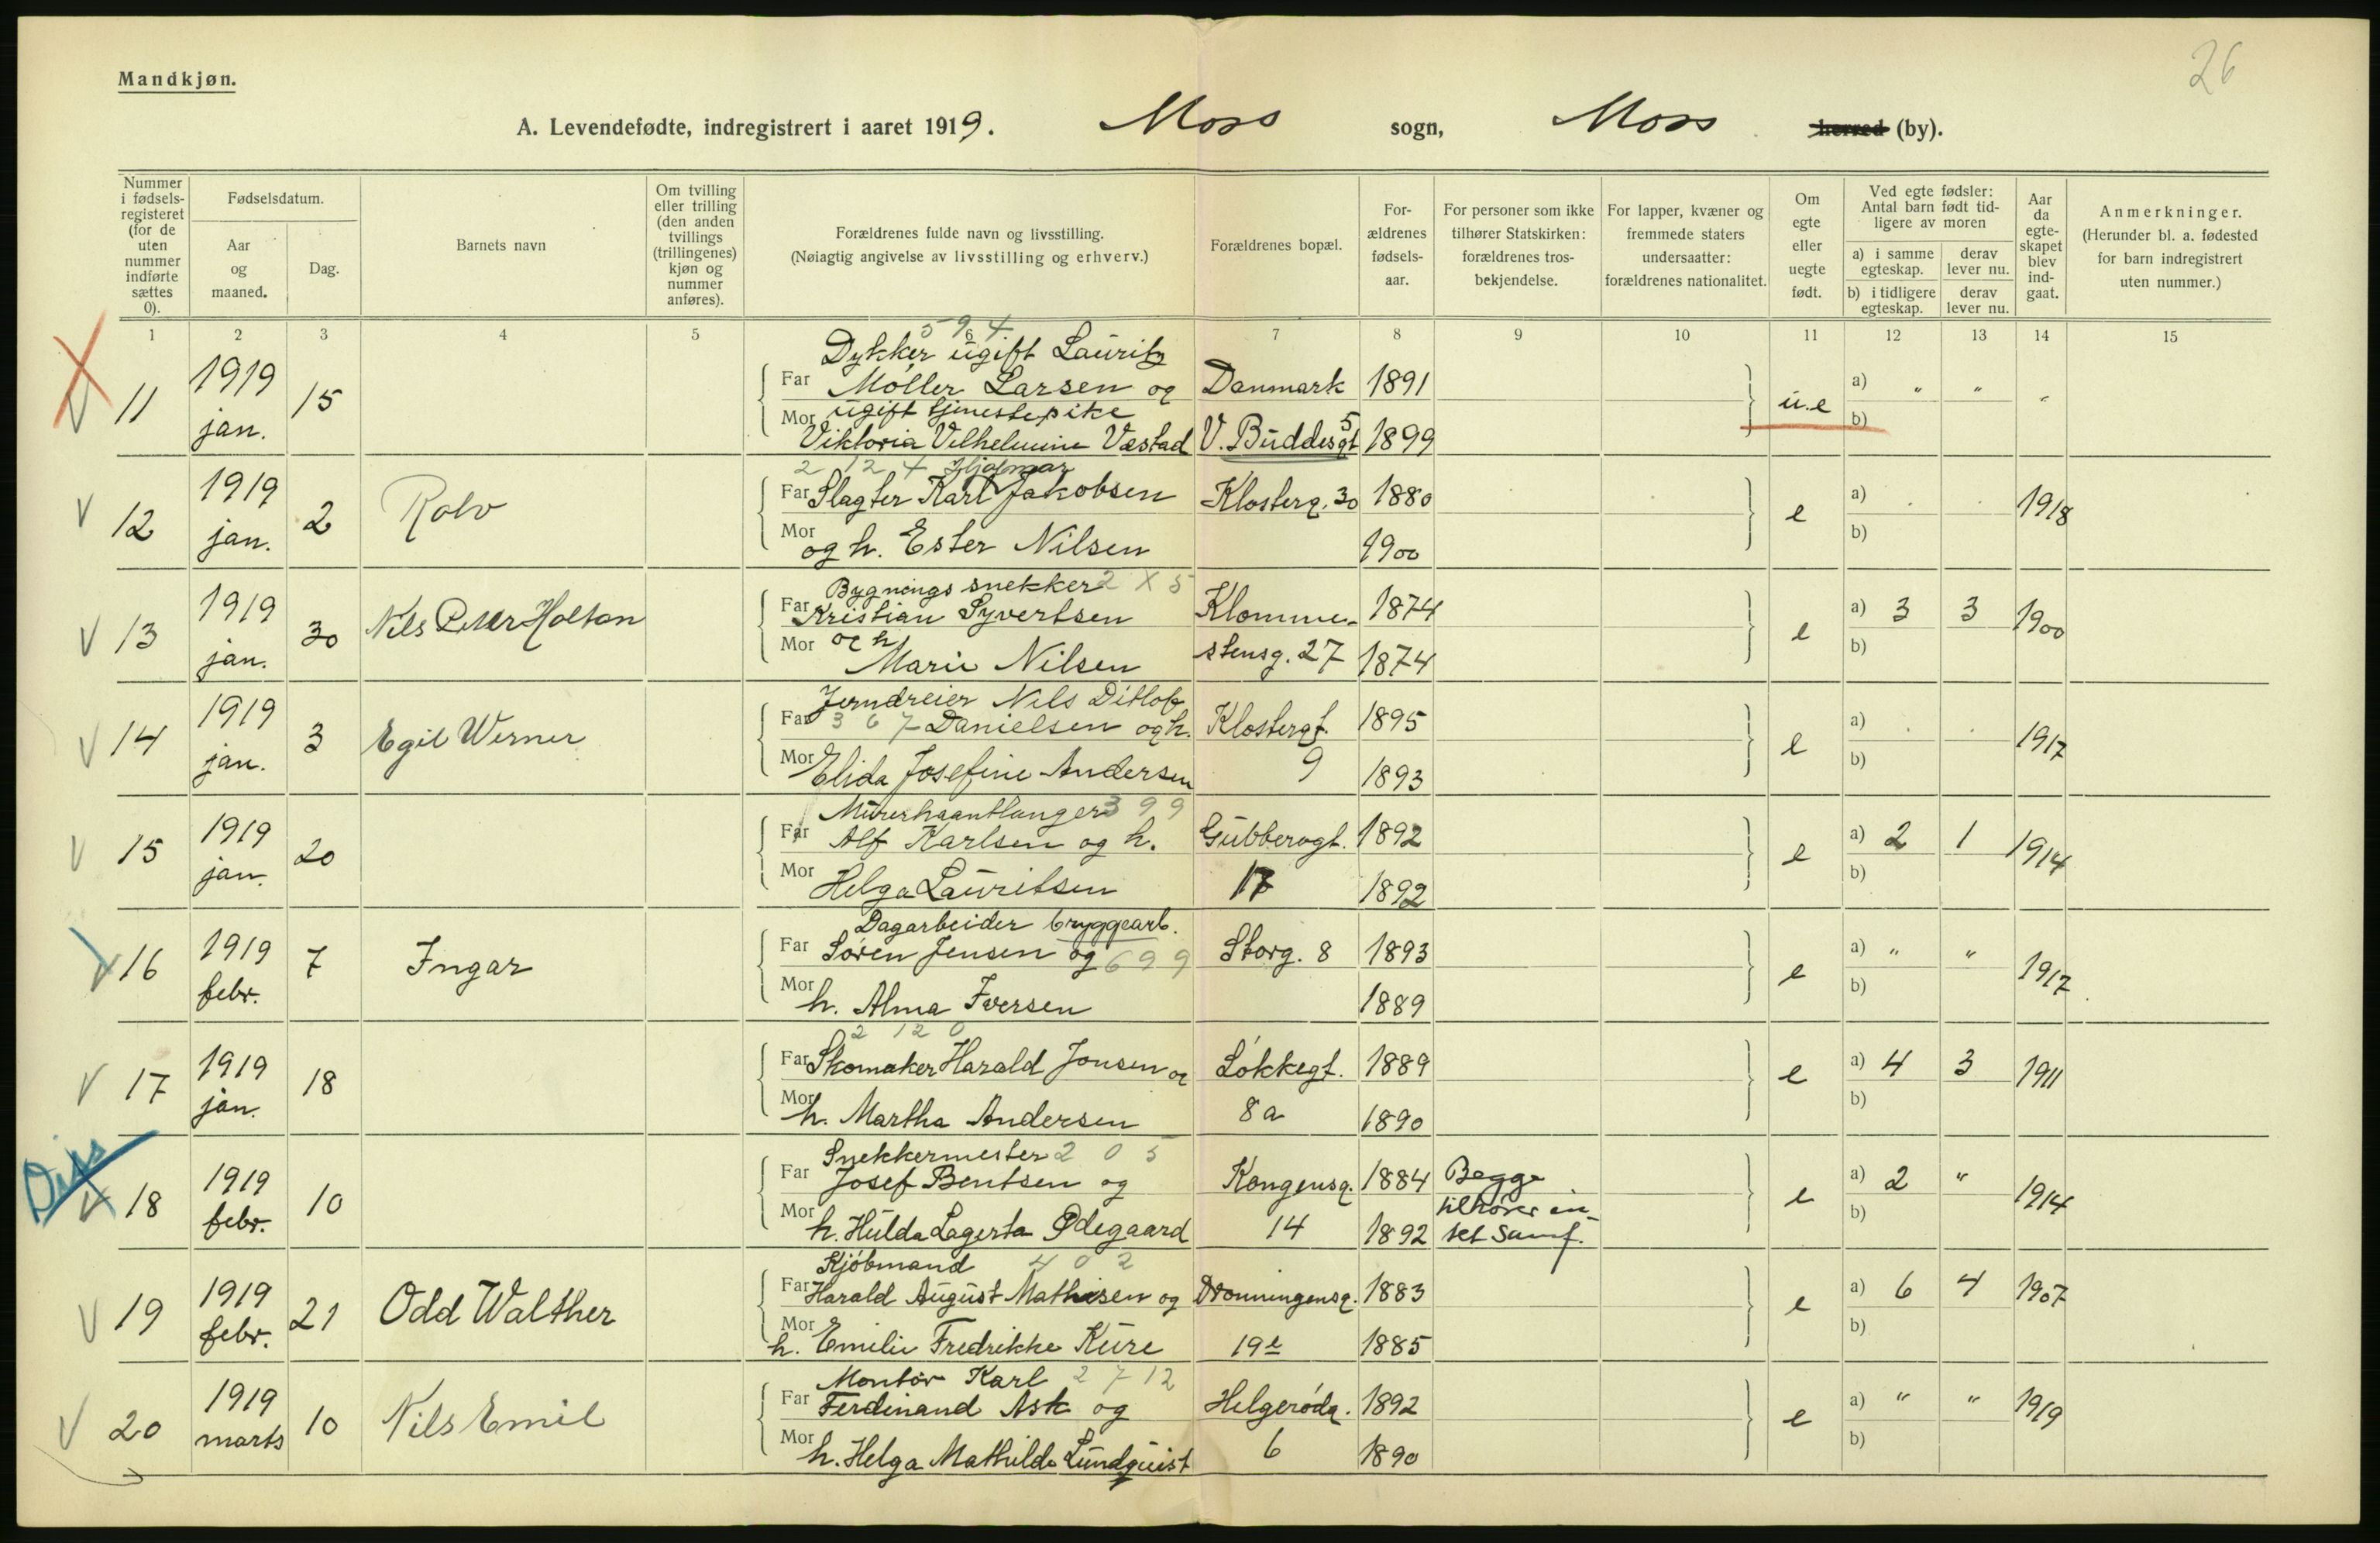 26
Mandkjøn.
A. Levendefødte, indregistrert i aaret 1919. Moss sogn, Moss herred (by).
Nummer i fødsels-registeret (for de uten nummer indførte sættes 0).
Fødselsdatum.
Aar og maaned.
Dag.
Barnets navn
Om tvilling eller trilling (den anden tvillings (trillingenes) kjøn og nummer anføres).
Forældrenes fulde navn og livsstilling.
(Nøiagtig angivelse av livsstilling og erhverv.)
Forældrenes bopæl.
For-ældrenes fødsels-aar.
For personer som ikke tilhører Statskirken: forældrenes tros-bekjendelse.
For lapper, kvæner og fremmede staters undersaatter: forældrenes nationalitet.
Om egte eller uegte født.
Ved egte fødsler: Antal barn født tid-ligere av moren
a) i samme egteskap. derav lever nu.
b) i tidligere egteskap. derav lever nu.
Aar da egte-skapet blev ind-gaat.
Anmerkninger.
(Herunder bl. a. fødested for barn indregistrert uten nummer.)
1 2 3 4 5 6 7 8 9 10 11 12 13 14 15
594
Dykker, ugift Lauritz
11 1919 jan. 15 Far Møller Larsen og Danmark 1891 u.e a) " " "
Mor ugift tjenestepike
Viktoria Vilhelmine Væstad V. Buddesgt 5 1899 b)
2 12 4 Hjalmar
12 1919 jan. 2 Rolv Far Slagter Karl Jakobsen Klosterg. 30 1880 e a) . . 1918
Mor og h. Ester Nilsen 1900 b)
Bygnings snekker 2 X 5
13 1919 jan. 30 Nils Peter Holtan Far Kristian Syvertsen Klomme- 1874 e a) 3 3 1900
Mor og h. Marie Nilsen stensg. 27 1874 b)
Jerndreier Nils Ditlof
14 1919 jan. 3 Egil Werner Far 3 6 7 Danielsen og h. Klostergt. 1895 e a) . . 1917
Mor Elida Josefine Andersen 9 1893 b)
Murerhaantlanger 3 9 9
15 1919 jan. 20 Far Alf Karlsen og h. Gubberogt. 1892 e a) 2 1 1914
Mor Helga Lauritsen 17 1892 b)
Dagarbeider bryggearb.
16 1919 febr. 7 Ingar Far Søren Jensen og 6 9 9 Storg. 8 1893 e a) " " 1917
Mor h. Alma Iversen 1889 b)
2 12 0
17 1919 jan. 18 Far Skomaker Harald Jonsen og Løkkegt. 1889 e a) 4 3 1911
Mor h. Martha Andersen 8a 1890 b)
Diss
Snekkermester 2 0 5
18 1919 febr. 10 Far Josef Bentsen og Kongensg. 1884 Begge e a) 2 " 1914
tilhører in-
Mor h. Hulda Lagerta Ødegaard 14 1892 tet Samf. b)
Kjøbmand 4 0 2
19 1919 febr. 21 Odd Walther Far Harald August Mathisen og Dronningensg. 1883 e a) 6 4 1907
Mor h. Emilie Fredrikke Kure 19e 1885 b)
Montør Karl 2 7 12
20 1919 marts 10 Nils Emil Far Ferdinand Ask og Helgerødg. 1892 e a) " " 1919
Mor h. Helga Mathilde Lundquist 6 1890 b)